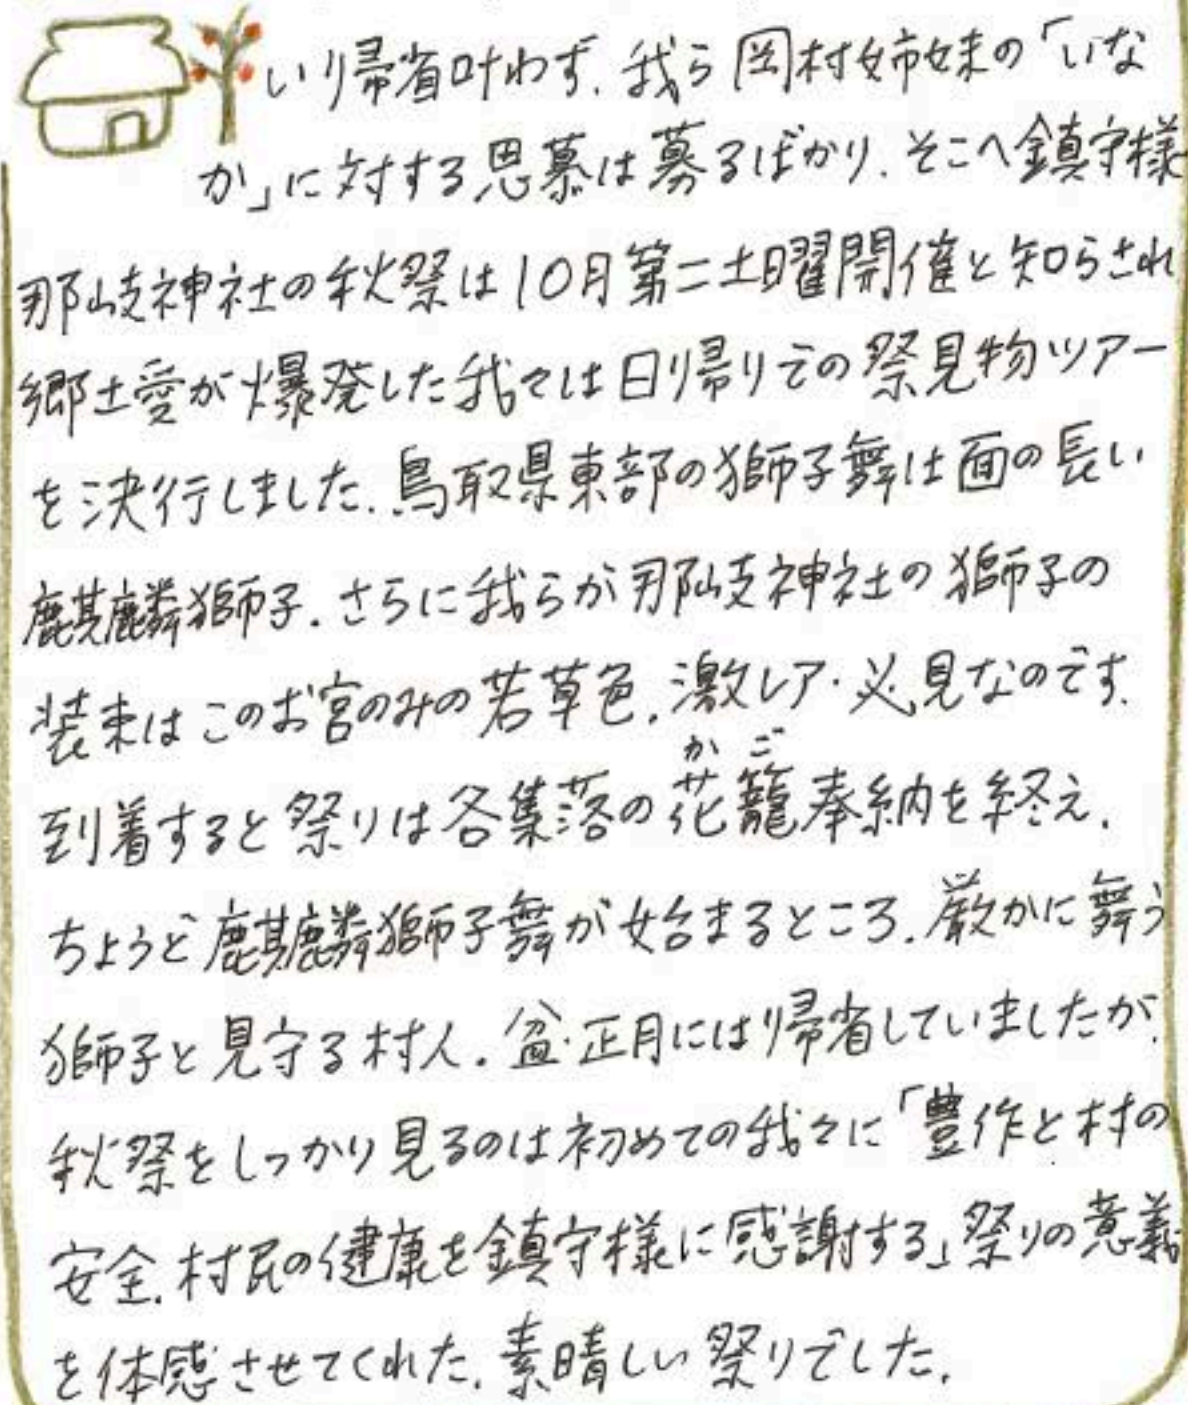 いり帰省叶わず、我ら岡村姉妹の「いな
か」に対する思慕は募るばかり。そこへ鎮守様
那岐神社の秋祭は10月第二土曜開催と知らされ
郷土愛が爆発した我々は日帰りでの祭見物ツアー
を決行しました。鳥取県東部の獅子舞は面の長い
麒麟獅子。さらに我らが那岐神社の獅子の
装束はこのお宮のみの若草色。激レア・必見なのです。
到着すると祭りは各集落の花籠奉納を終え、
かご
ちょうど麒麟獅子舞が始まるところ。厳かに舞う
獅子と見守る村人。盆・正月には帰省していましたが、
秋祭をしっかり見るのは初めての我々に「豊作と村の
安全、村民の健康を鎮守様に感謝する」祭りの意義
を体感させてくれた、素晴しい祭りでした。